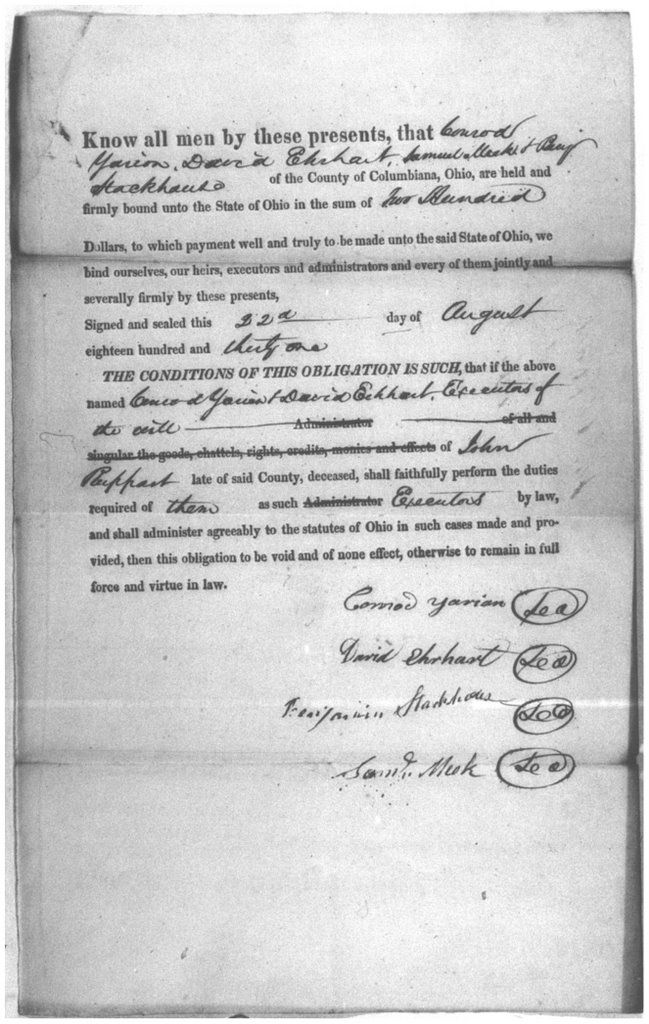 Know all men by these presents, that Conrod
Yarion, David Ehrhart, Samuel Meek & Benj
Stackhouse of the County of Columbiana, Ohio, are held and
firmly bound unto the State of Ohio in the sum of Two Hundred
Dollars, to which payment well and truly to be made unto the said State of Ohio, we
bind ourselves, our heirs, executors and administrators and every of them jointly and
severally firmly by these presents,
Signed and sealed this 22d day of August
eighteen hundred and thirty one
THE CONDITIONS OF THIS OBLIGATION IS SUCH, that if the above
named Conrod Yarion & David Ehrhart, Executors of
the will Administrator of all and
singular the goods, chattels, rights, credits, monies and effects of John
Ruppart late of said County, deceased, shall faithfully perform the duties
required of them as such Administrator Executors by law,
and shall administer agreeably to the statutes of Ohio in such cases made and pro-
vided, then this obligation to be void and of none effect, otherwise to remain in full
force and virtue in law.
Conrod Yarian
David Ehrhart
Benjamin Stackhouse
Saml. Meek